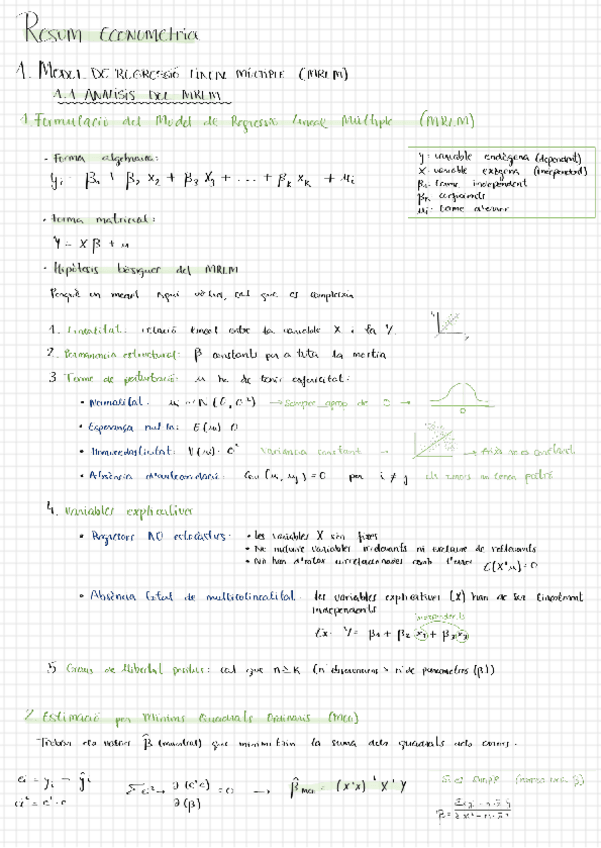 Resum Econometria
1. MODEL DE REGRESSIÓ LINEAL MÚLTIPLE (MRLM)
1.1 ANÀLISIS DEL MRLM
1. Formulació del Model de Regressió Lineal Múltiple (MRLM)
· Forma algebraica:
yi = β1 + β2 X2 + β3 X3 + ... + βk Xk + ui
y: variable endògena (dependent)
X: variable exògena (independent)
β1: terme independent
βk: coeficients
ui: terme d'error
· Forma matricial:
Y = X β + u
· Hipòtesis bàsiques del MRLM
Perquè un model sigui vàlid, cal que es compleixin
1. Linealitat: relació lineal entre la variable X i la Y.
2. Permanència estructural: β constants per a tota la mostra
3 Terme de pertorbació: u ha de tenir esfericitat:
• Normalitat: u ~ N (0, σ²) → 0
• Esperança nul·la: E(u) = 0
• Homoscedasticitat: V(u) = σ² Variància constant →
• Absència d'autocorrelació: Cov (ui, uj) = 0 per i ≠ j els errors no tenen
4. Variables explicatives
• Regressors NO estocàstics: • les variables X són fixes
• No incloure variables irrellevants ni excloure de rellevants
• No han d'estar correlacionades amb l'error E(X'u) = 0
• Absència total de multicolinealitat: les variables explicatives (X) han de ser linealment
independents
independents
Ex: Y = β1 + β2 X2 + β3 X3
5 Graus de llibertat positius: cal que n ≥ K (nº d'observacions > nº de paràmetres (β))
2. Estimació per Mínims Quadrats Ordinaris (MQO)
Trobar els valors β̂ (mostral) que minimitzin la suma dels quadrats dels errors.
ei = yi - ŷi
ei² = e'·e
Σei² → ∂(e'e) / ∂(β) = 0 → β̂MQO = (X'X)⁻¹ X'Y